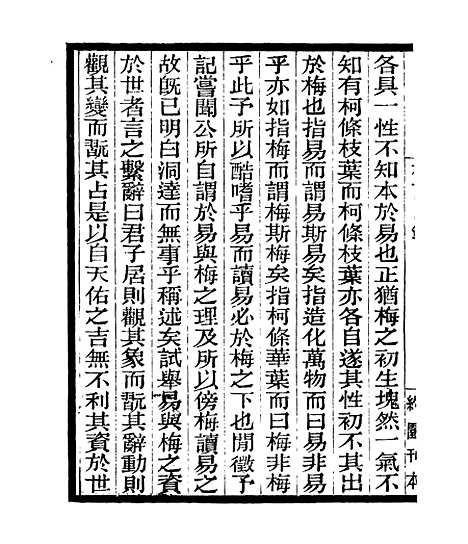 各具一性不知本於易也正猶梅之初生塊然一氣不
知有柯條枝葉而柯條枝葉亦各自遂其性初不其出
於梅也指易而謂易斯易矣指造化萬物而曰易非易
乎亦如指梅而謂梅斯梅矣指柯條華葉而曰梅非梅
乎此予所以酷嗜乎易而讀易必於梅之下也閒徵予
記嘗聞公所自謂於易與梅之理及所以傍梅讀易之
故旣已明白洞達而無事乎稱述矣試舉易與梅之資
於世者言之繫辭曰君子居則觀其象而翫其辭動則
觀其變而翫其占是以自天佑之吉無不利其資於世